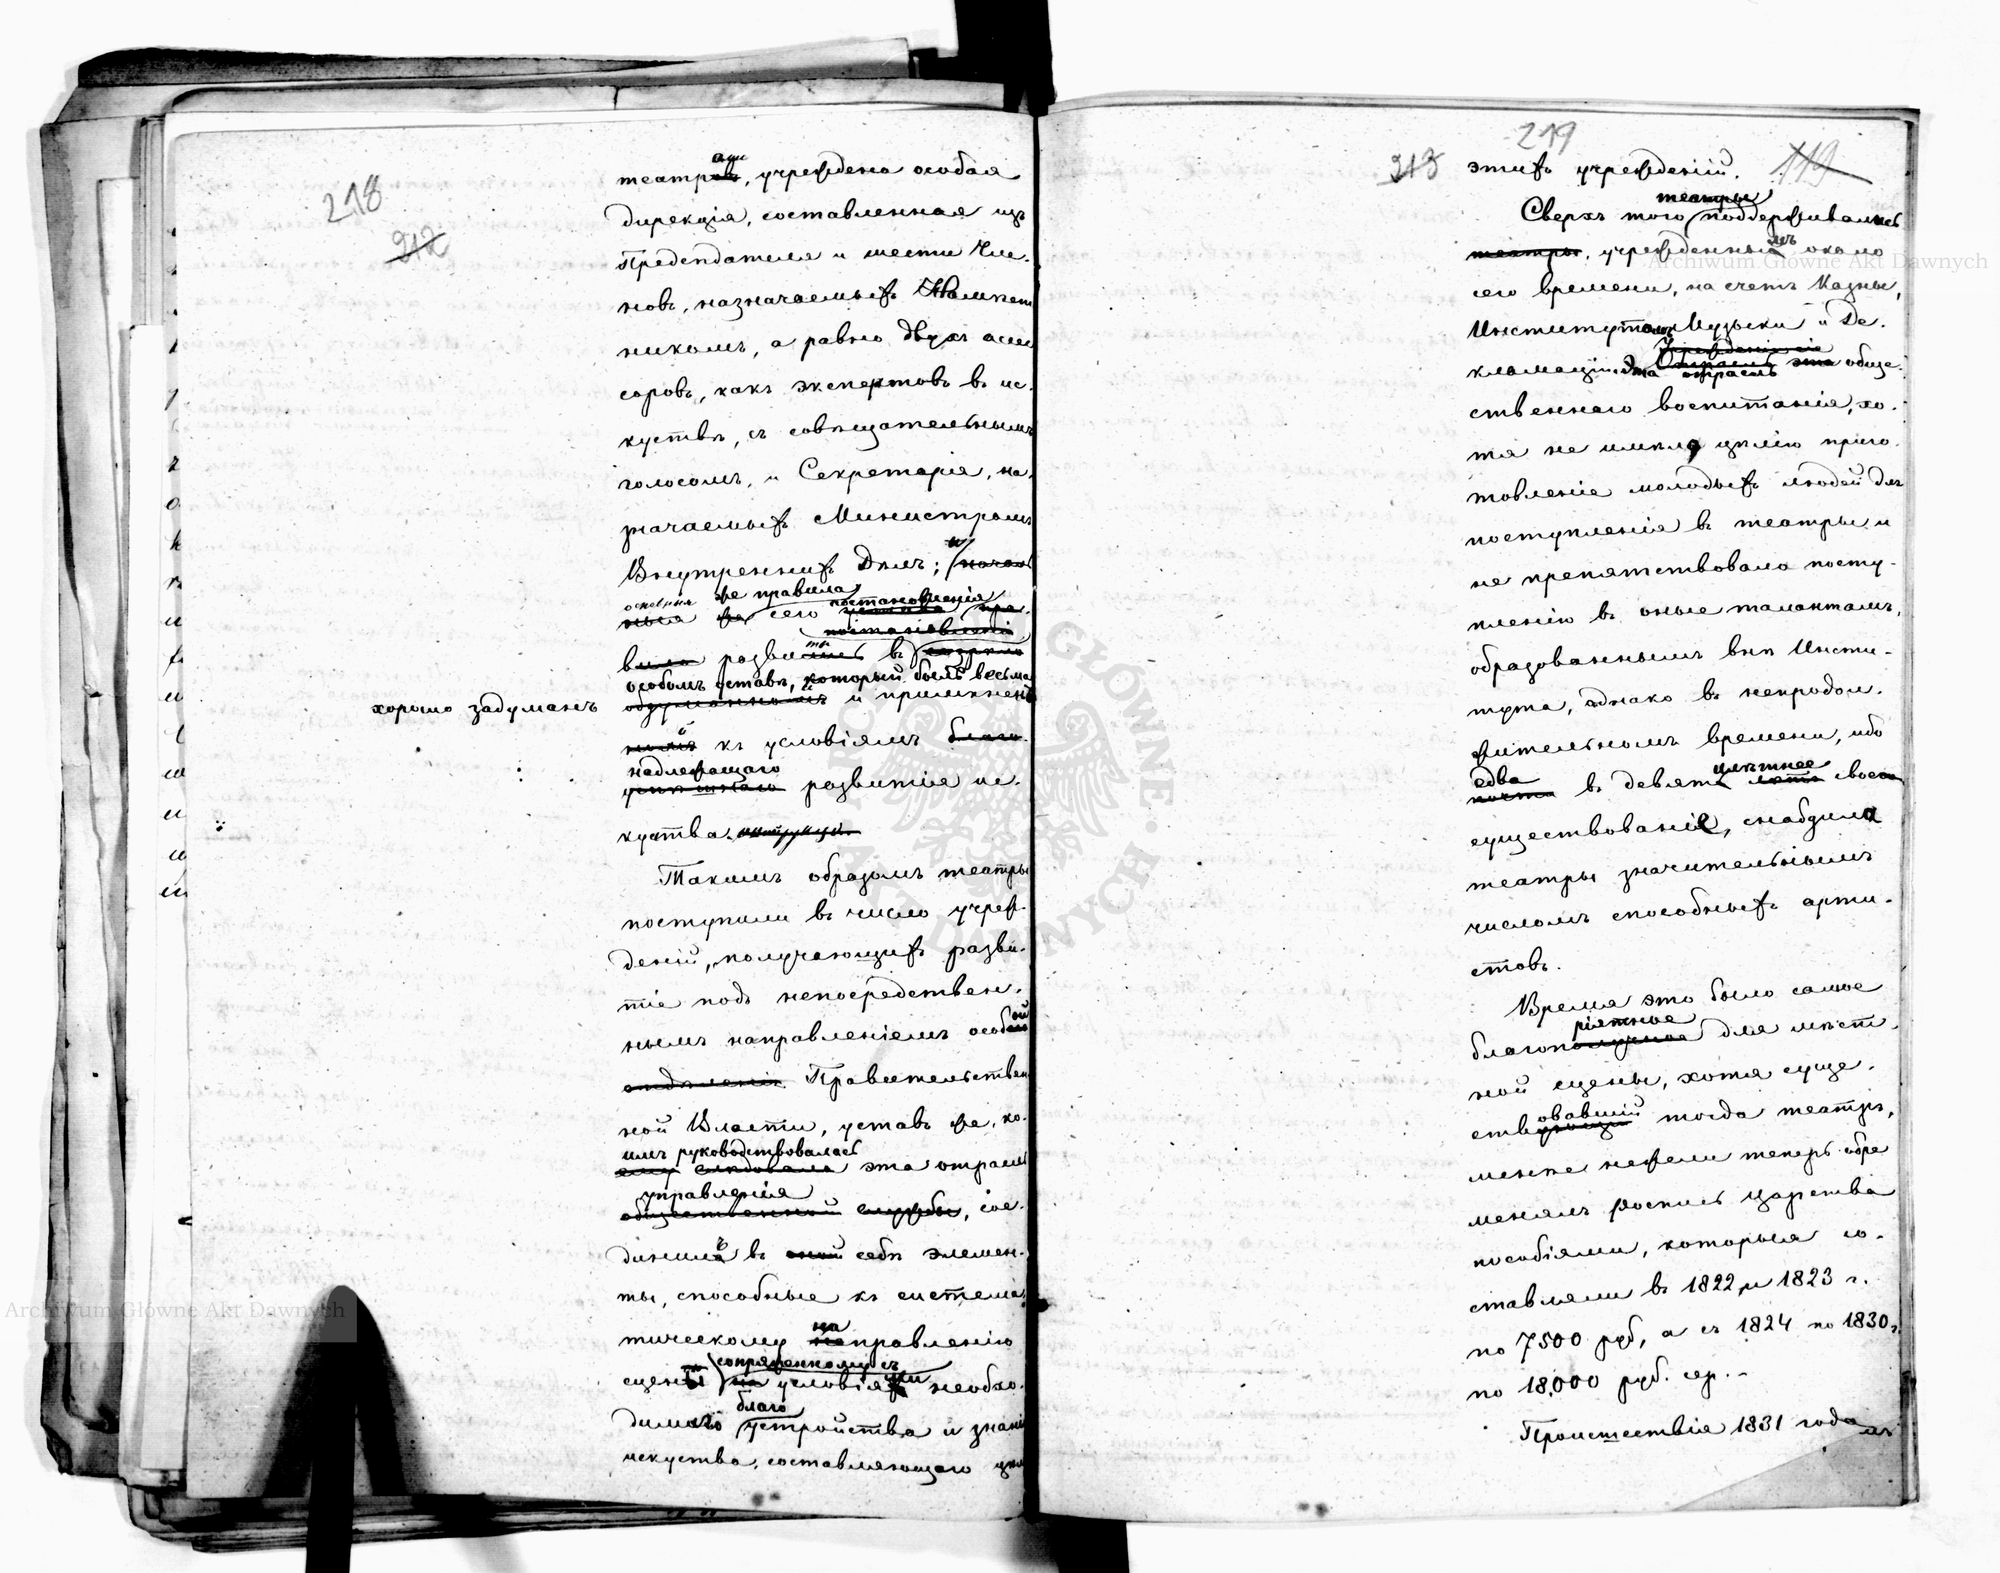 218
212
театрами, учреждена особая
дирекція, составленная изъ
Предсѣдателя и шести Чле-
новъ, назначаемыхъ Намѣст
никомъ, а равно двухъ асес
соровъ, какъ экспертовъ въ ис-
куствѣ, съ совѣщательнымъ
голосомъ, и Секретаря, на-
значаемыхъ Министромъ
Внутреннихъ Дѣлъ; и
основныя же правила
сего постановленія
постановленія
развиты въ
особомъ уставѣ, который былъ весьма
хорошо задуманъ
обдуманномъ и примѣненъ
къ условіямъ благо-
надлежащаго
успѣшнаго развитія ис-
куства.
Такимъ образомъ театры
поступили въ число учреж-
деній, получающихъ разви-
тіе подъ непосредствен-
нымъ направленіемъ особой
отдѣленія Правительствен
ной Власти, уставъ же, ко-
имъ руководствовалась
ему слѣдовала эта отрасль
управленія
общественной службы, сое-
динилъ въ себѣ элемен-
ты, способные къ система-
тическому направленію
сопряженному съ
сцены условіями необхо-
благо
димаго устройства и знанія
искуства, составляющаго цѣль
219
213
119
этихъ учрежденій.
театры
Сверхъ того поддерживались
театры, учрежденнымъ около
сего времени, на счетъ Казны,
Институтомъ Музыки и Де-
Учрежденіе сіе
кламаціи. Эта отрасль эта обще-
отрасль
ственнаго воспитанія, хо-
тя не имѣла цѣлію приго-
товленіе молодыхъ людей для
поступленія въ театры и
не препятствовала посту-
пленію въ оные талантамъ,
образованнымъ внѣ Инсти-
тута, однако въ непродол-
жительномъ времени, ибо
едва
почти въ девятилѣтнее лѣтъ своего
существованіе, снабдила
театры значительнымъ
числомъ способныхъ арти-
стовъ.
Время это было самое
ріятное
благополучное для мѣст-
ной сцены, хотя суще-
ствовавшій тогда театръ,
менѣе нежели теперь обре
менялъ роспись Царства
пособіями, которыя со-
ставляли въ 1822 и 1823 г.
по 7500 руб, а съ 1824 по 1830 г.
по 18,000 руб. сер. -
Происшествія 1831 года
Archiwum Główne Akt Dawnych
Archiwum Główne Akt Dawnych